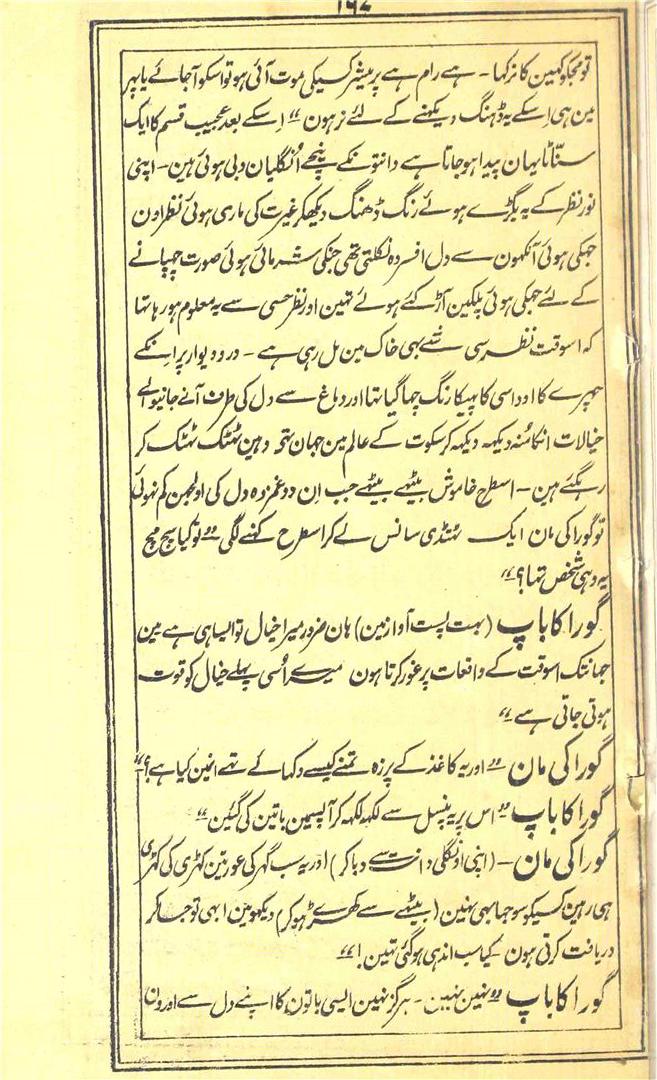 ۱۶۷
تو مجکو کہین کا نرکہا - ہے رام ہے پرمیشر کسیکی موت آئی ہو تو اسکو آجائے یا پہر
مین ہی اِسکے یہ ڈہنگ دیکہنے کے لئے نرہون ،، اِسکے بعد عجیب قسم کا ایک
سنّاٹا یہان پیدا ہو جاتا ہے دانتونکے نیچے اُنگلیان دبی ہوئی ہین - اپنی
نور نظر کے یہ بگڑے ہوئے رنگ ڈھنگ دیکھکر غیرت کی ماری ہوئی نظر اون
جہکی ہوئی آنکہون سے دل افسردہ نکلتی تھی جنکی شرمائی ہوئی صورت چہپانے
کے لئے جہکی ہوئی پلکین آڑ کئے ہوئے تہین اور نظر حسی سے یہ معلوم ہو رہا تہا
کہ اسوقت نظر سی شے بہی خاک مین مل رہی ہے - در و دیوار پر اِنکے
چہرے کا اوداسی کا پہیکا رنگ چہا گیا تہا اور دماغ سے دل کی طرف آنے جانیوالے
خیالات انکا منہ دیکہہ دیکہہ کر سکوت کے عالم مین جہان تہے وہین ٹہٹک ٹہٹک کر
رہگئے ہین - اسطرح خاموش بیٹہے بیٹہے جب اِن دو غمزدہ دل کی اولجہن کم نہوئی
تو گورا کی مان ایک ٹہنڈی سانس لے کر اسطرح کہنے لگی ،، تو کیا سچ مچ
یہ وہی شخص تہا؟ ،،
گورا کا باپ (بہت پست آواز مین) ہان ضرور میرا خیال تو ایسا ہی ہے مین
جہانتک اسوقت کے واقعات پر غور کرتا ہون میرے اُسی پہلے خیال کو قوت
ہوتی جاتی ہے ،،
گورا کی مان ،، اور یہ کاغذ کے پرزہ تمنے کیسے دکہائے تہے انین کیا ہے؟ ،،
گورا کا باپ ،، اس پر پنسل سے لکہہ لکہہ کر آپسمین باتین کی گئین ،،
گورا کی مان - (اپنی اونگلی دانت سے دبا کر) اور یہ سب گہر کی عورتین کہڑی کی کہڑی
ہی رہین کسیکو سوجہا بہی نہین (بیٹہے سے کہڑے ہو کر) دیکہو مین ابہی تو جا کر
دریافت کرتی ہون کیا سب اندہی ہو گئی تہین! ،،
گورا کا باپ ،، نہین نہین - ہرگز نہین ایسی باتون کا اپنے دل سے اورون